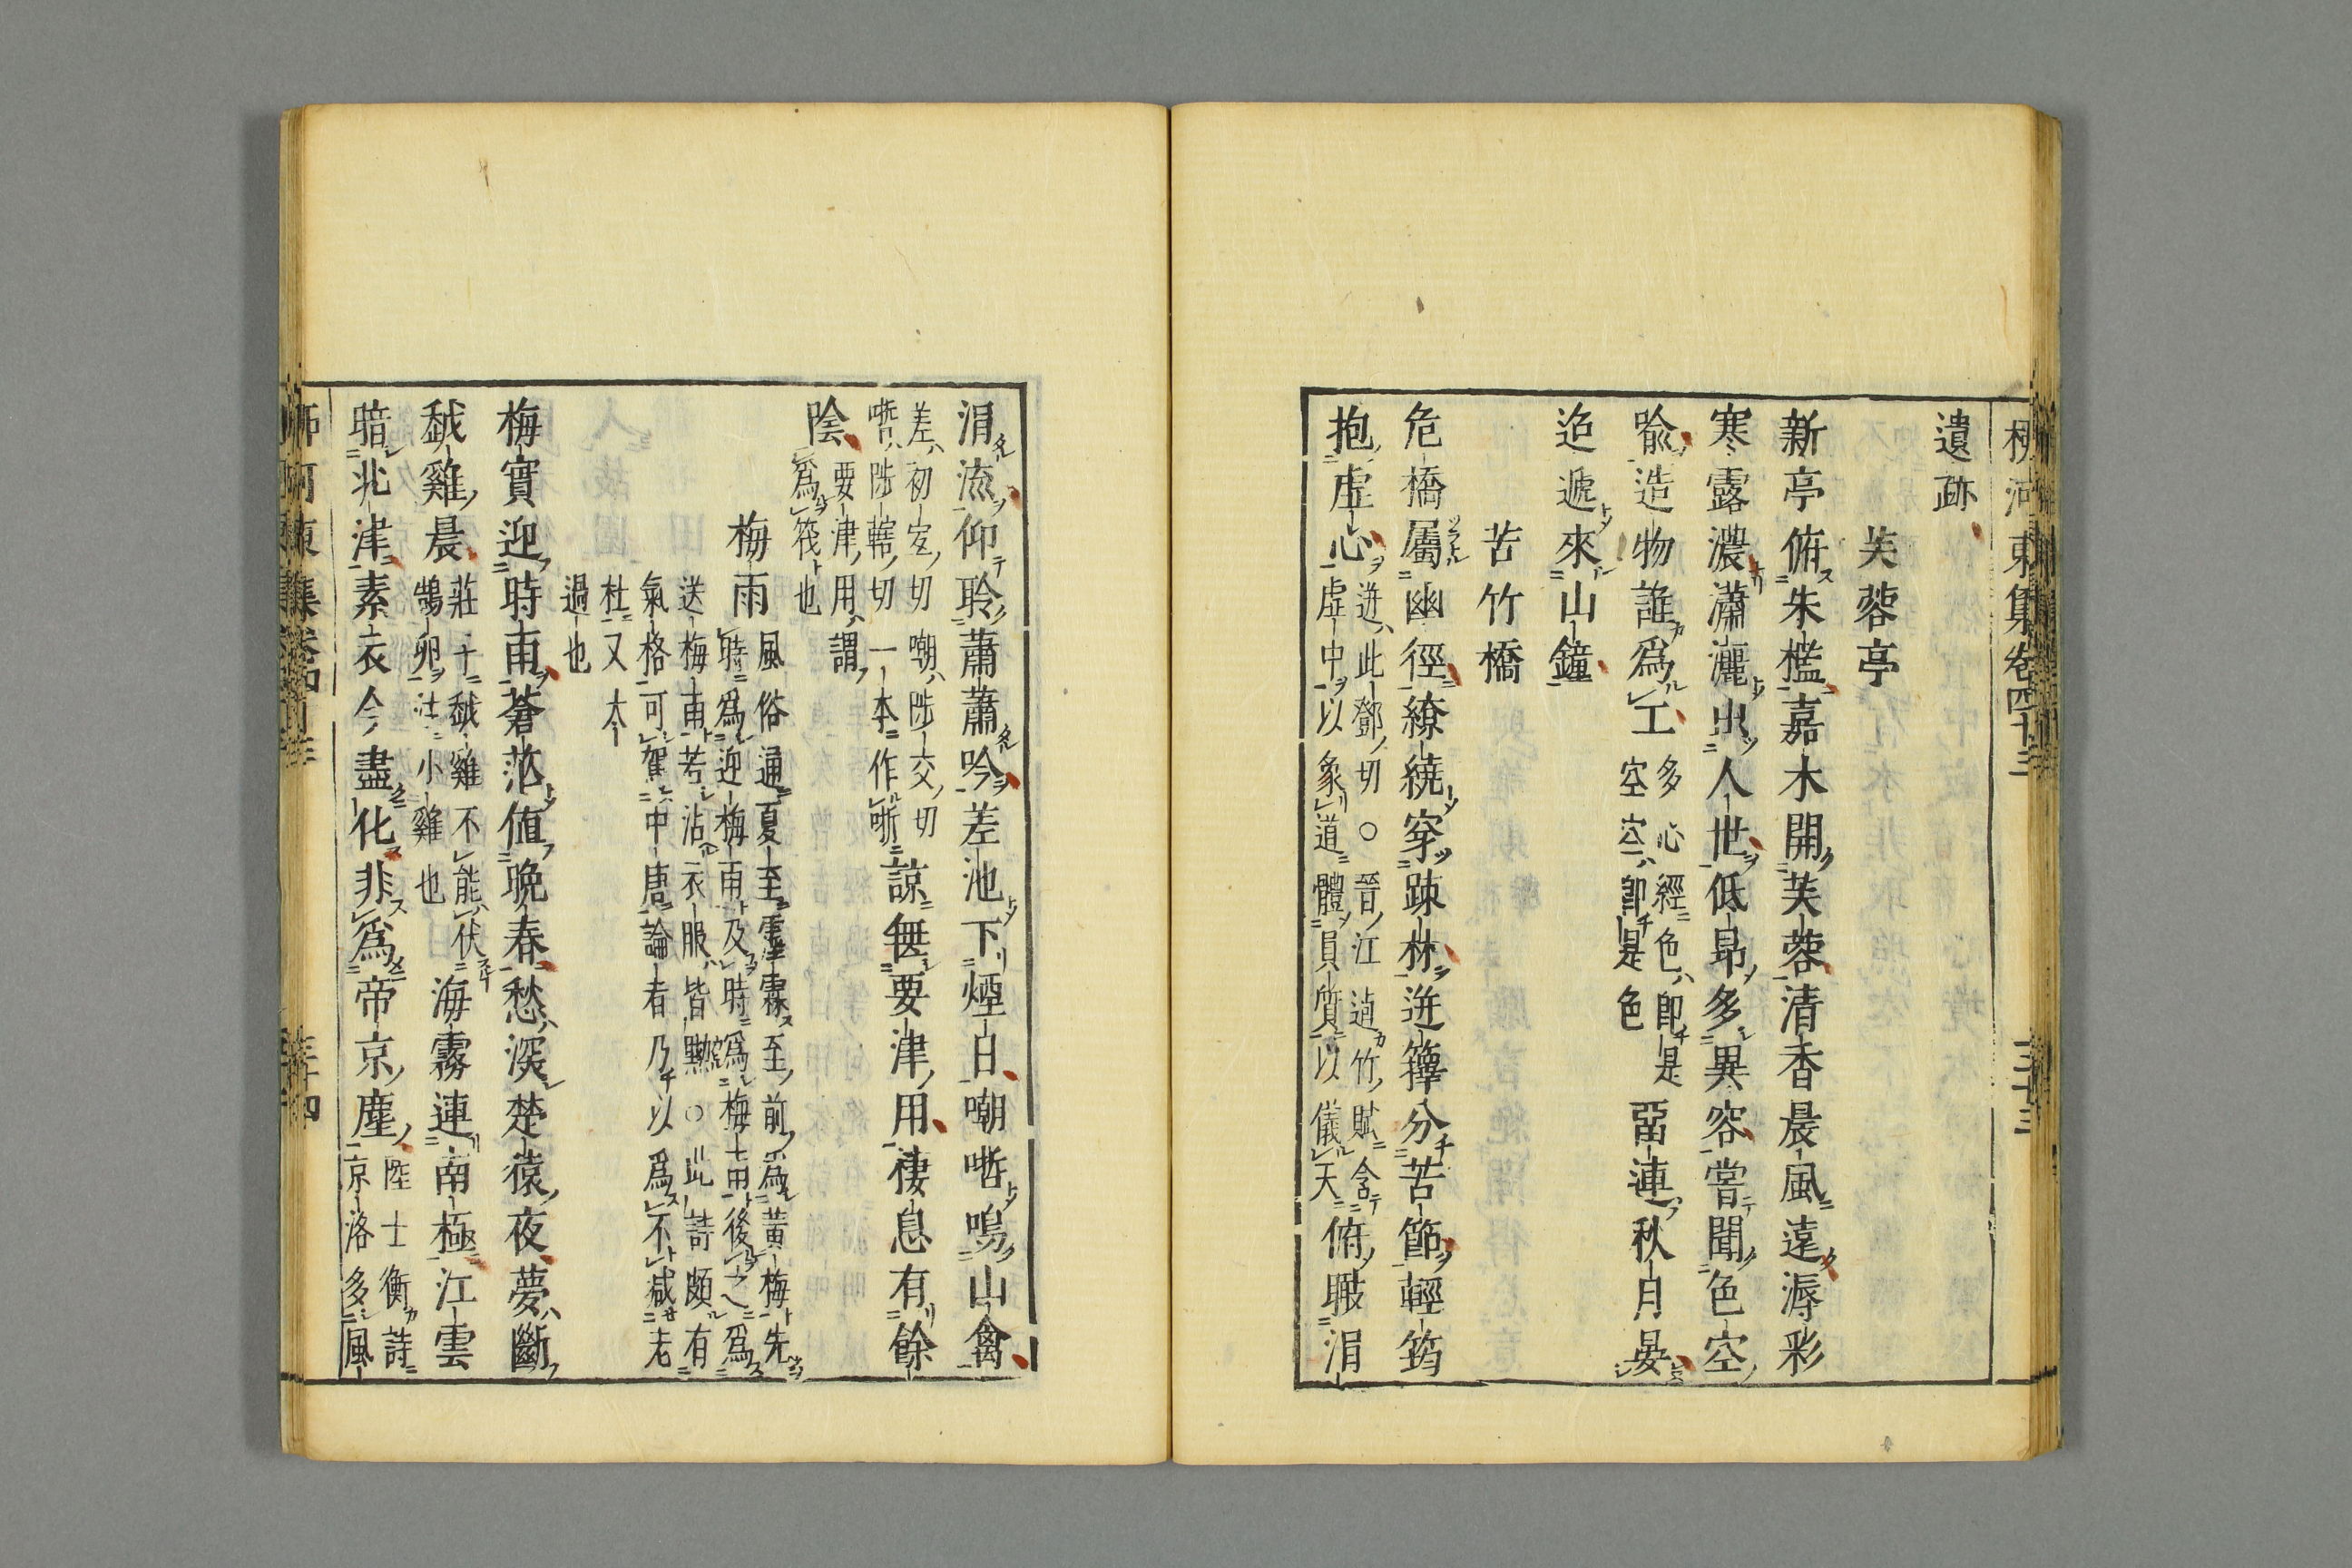 柳河東集卷四十三
三十三
遺跡
芙蓉亭
新亭俯朱檻嘉木開芙蓉清香晨風遠溽彩
寒露濃瀟灑出人世低昂多異容嘗聞色空
喩造物誰爲工
多心經色卽是
空空卽是色
畱連秋月晏
迢遞來山鐘
苦竹橋
危橋屬幽徑繚繞穿疎林迸籜分苦節輕筠
抱虛心
迸此鄧切○晉江逌竹賦含
虛中以象道體員質以儀天
俯瞰涓
涓流仰聆蕭蕭吟差池下煙日嘲哳鳴山禽
差初宜切嘲陟交切
哳陟轄切一本作晣
諒無要津用棲息有餘
陰
要津用謂
爲筏也
梅雨
風俗通夏至霖霪至前爲黃梅先
時爲迎梅雨及時爲梅雨後之爲
送梅雨若沾衣服皆黦○此詩頗有
氣格可駕中唐論者乃以爲不減老
杜又太
過也
梅實迎時雨蒼茫値晚春愁深楚猿夜夢斷
越雞晨
莊子越雞不能伏
鵠卵注小雞也
海霧連南極江雲
暗北津素衣今盡化非爲帝京塵
陸士衡詩
京洛多風
柳河東集卷四十三
三十四